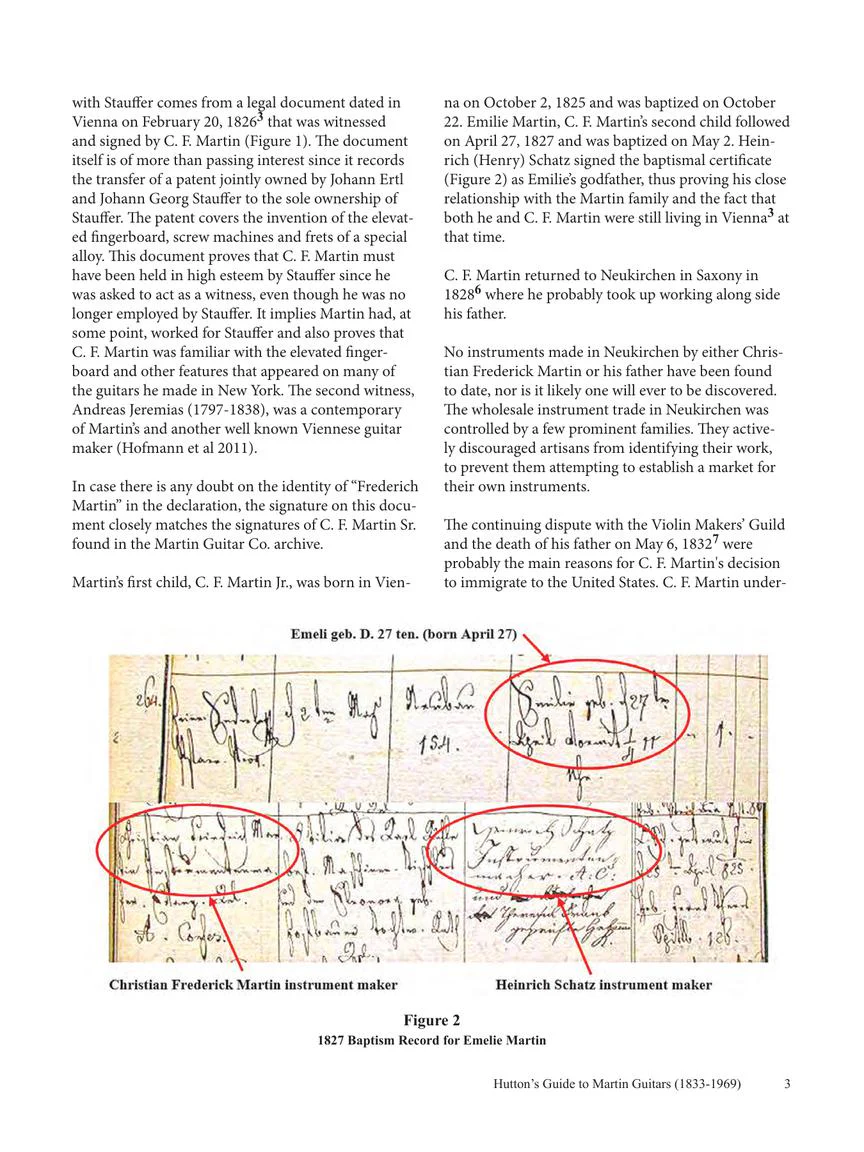 with Stauffer comes from a legal document dated in
Vienna on February 20, 1826³ that was witnessed
and signed by C. F. Martin (Figure 1). The document
itself is of more than passing interest since it records
the transfer of a patent jointly owned by Johann Ertl
and Johann Georg Stauffer to the sole ownership of
Stauffer. The patent covers the invention of the elevat-
ed fingerboard, screw machines and frets of a special
alloy. This document proves that C. F. Martin must
have been held in high esteem by Stauffer since he
was asked to act as a witness, even though he was no
longer employed by Stauffer. It implies Martin had, at
some point, worked for Stauffer and also proves that
C. F. Martin was familiar with the elevated finger-
board and other features that appeared on many of
the guitars he made in New York. The second witness,
Andreas Jeremias (1797-1838), was a contemporary
of Martin's and another well known Viennese guitar
maker (Hofmann et al 2011).
In case there is any doubt on the identity of “Frederich
Martin” in the declaration, the signature on this docu-
ment closely matches the signatures of C. F. Martin Sr.
found in the Martin Guitar Co. archive.
Martin's first child, C. F. Martin Jr., was born in Vien-
na on October 2, 1825 and was baptized on October
22. Emilie Martin, C. F. Martin's second child followed
on April 27, 1827 and was baptized on May 2. Hein-
rich (Henry) Schatz signed the baptismal certificate
(Figure 2) as Emilie's godfather, thus proving his close
relationship with the Martin family and the fact that
both he and C. F. Martin were still living in Vienna³ at
that time.
C. F. Martin returned to Neukirchen in Saxony in
1828⁶ where he probably took up working along side
his father.
No instruments made in Neukirchen by either Chris-
tian Frederick Martin or his father have been found
to date, nor is it likely one will ever to be discovered.
The wholesale instrument trade in Neukirchen was
controlled by a few prominent families. They active-
ly discouraged artisans from identifying their work,
to prevent them attempting to establish a market for
their own instruments.
The continuing dispute with the Violin Makers' Guild
and the death of his father on May 6, 1832⁷ were
probably the main reasons for C. F. Martin's decision
to immigrate to the United States. C. F. Martin under-
Emeli geb. D. 27 ten. (born April 27)
264.
Neubau
154.
Emilie geb. d 27 ten
April
Christian Friedrich Mar
Heinrich Schatz
Instrumenten
macher A. C.
und
Christian Frederick Martin instrument maker
Heinrich Schatz instrument maker
Figure 2
1827 Baptism Record for Emelie Martin
Hutton's Guide to Martin Guitars (1833-1969) 3